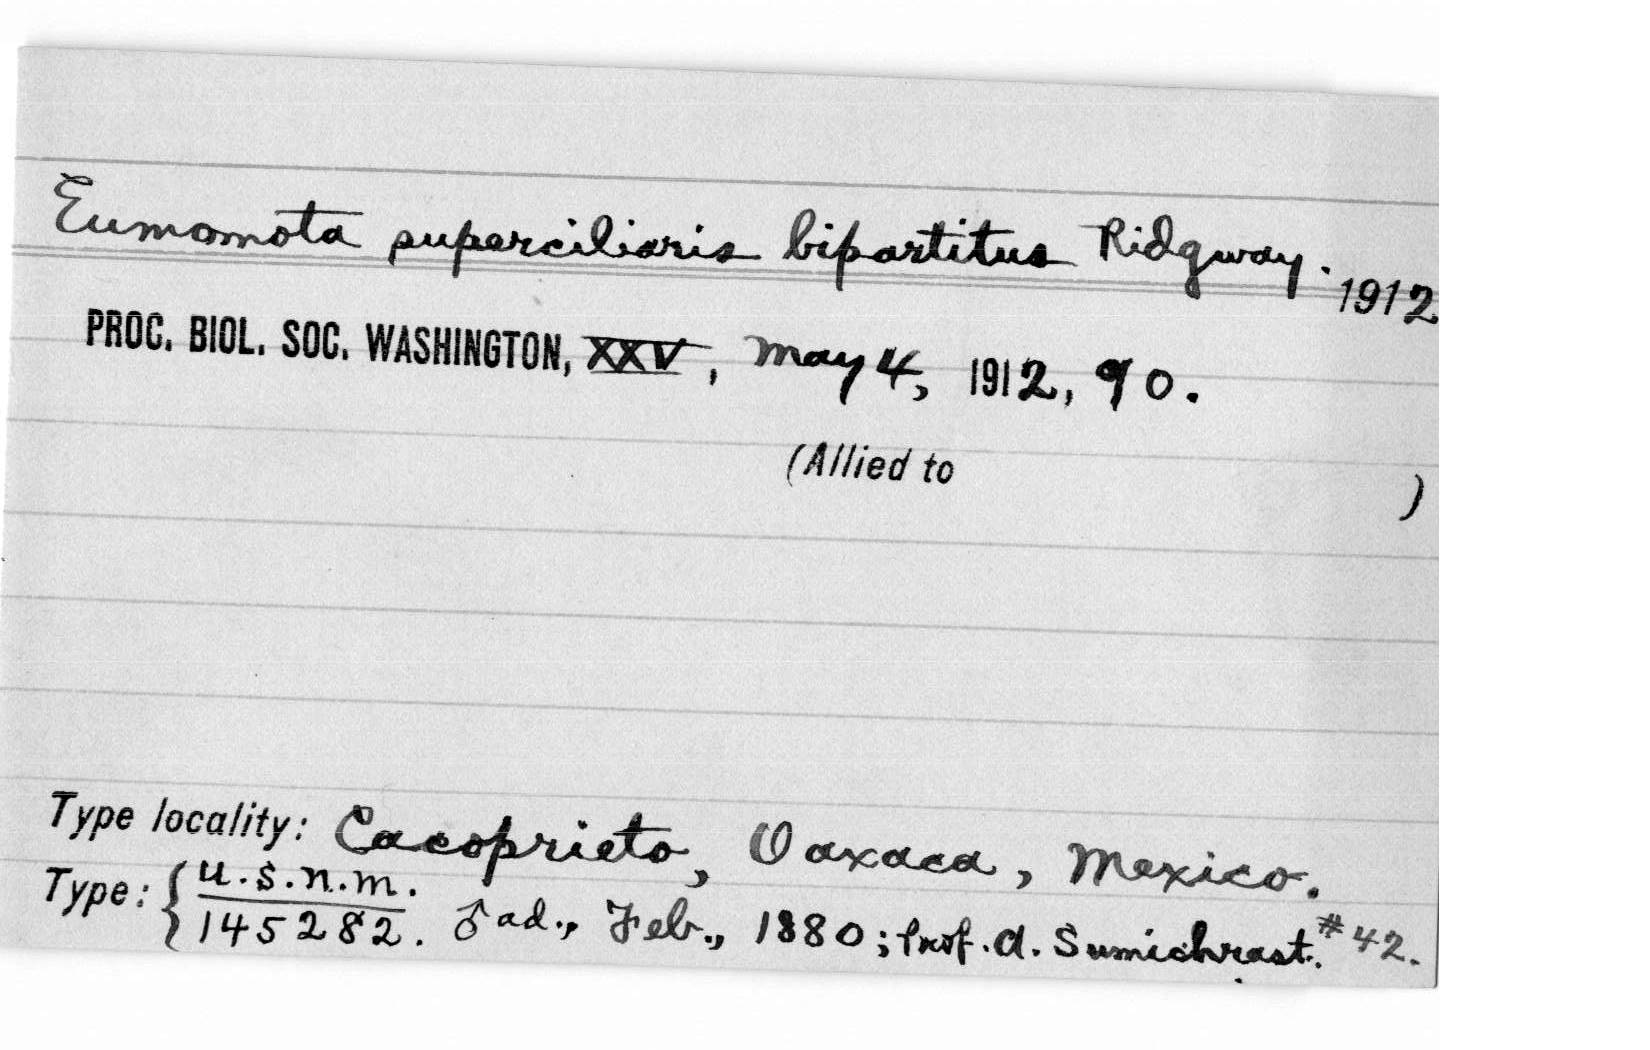 Eumomota superciliaris bipartitus Ridgway. 1912
PROC. BIOL. SOC. WASHINGTON, XXV, May 4, 1912, 90.
(Allied to )
Type locality: Cacoprieto, Oaxaca, Mexico.
Type: { U.S.N.M.
145282. ♂ ad., Feb., 1880; Prof. A. Sumichrast. #42.